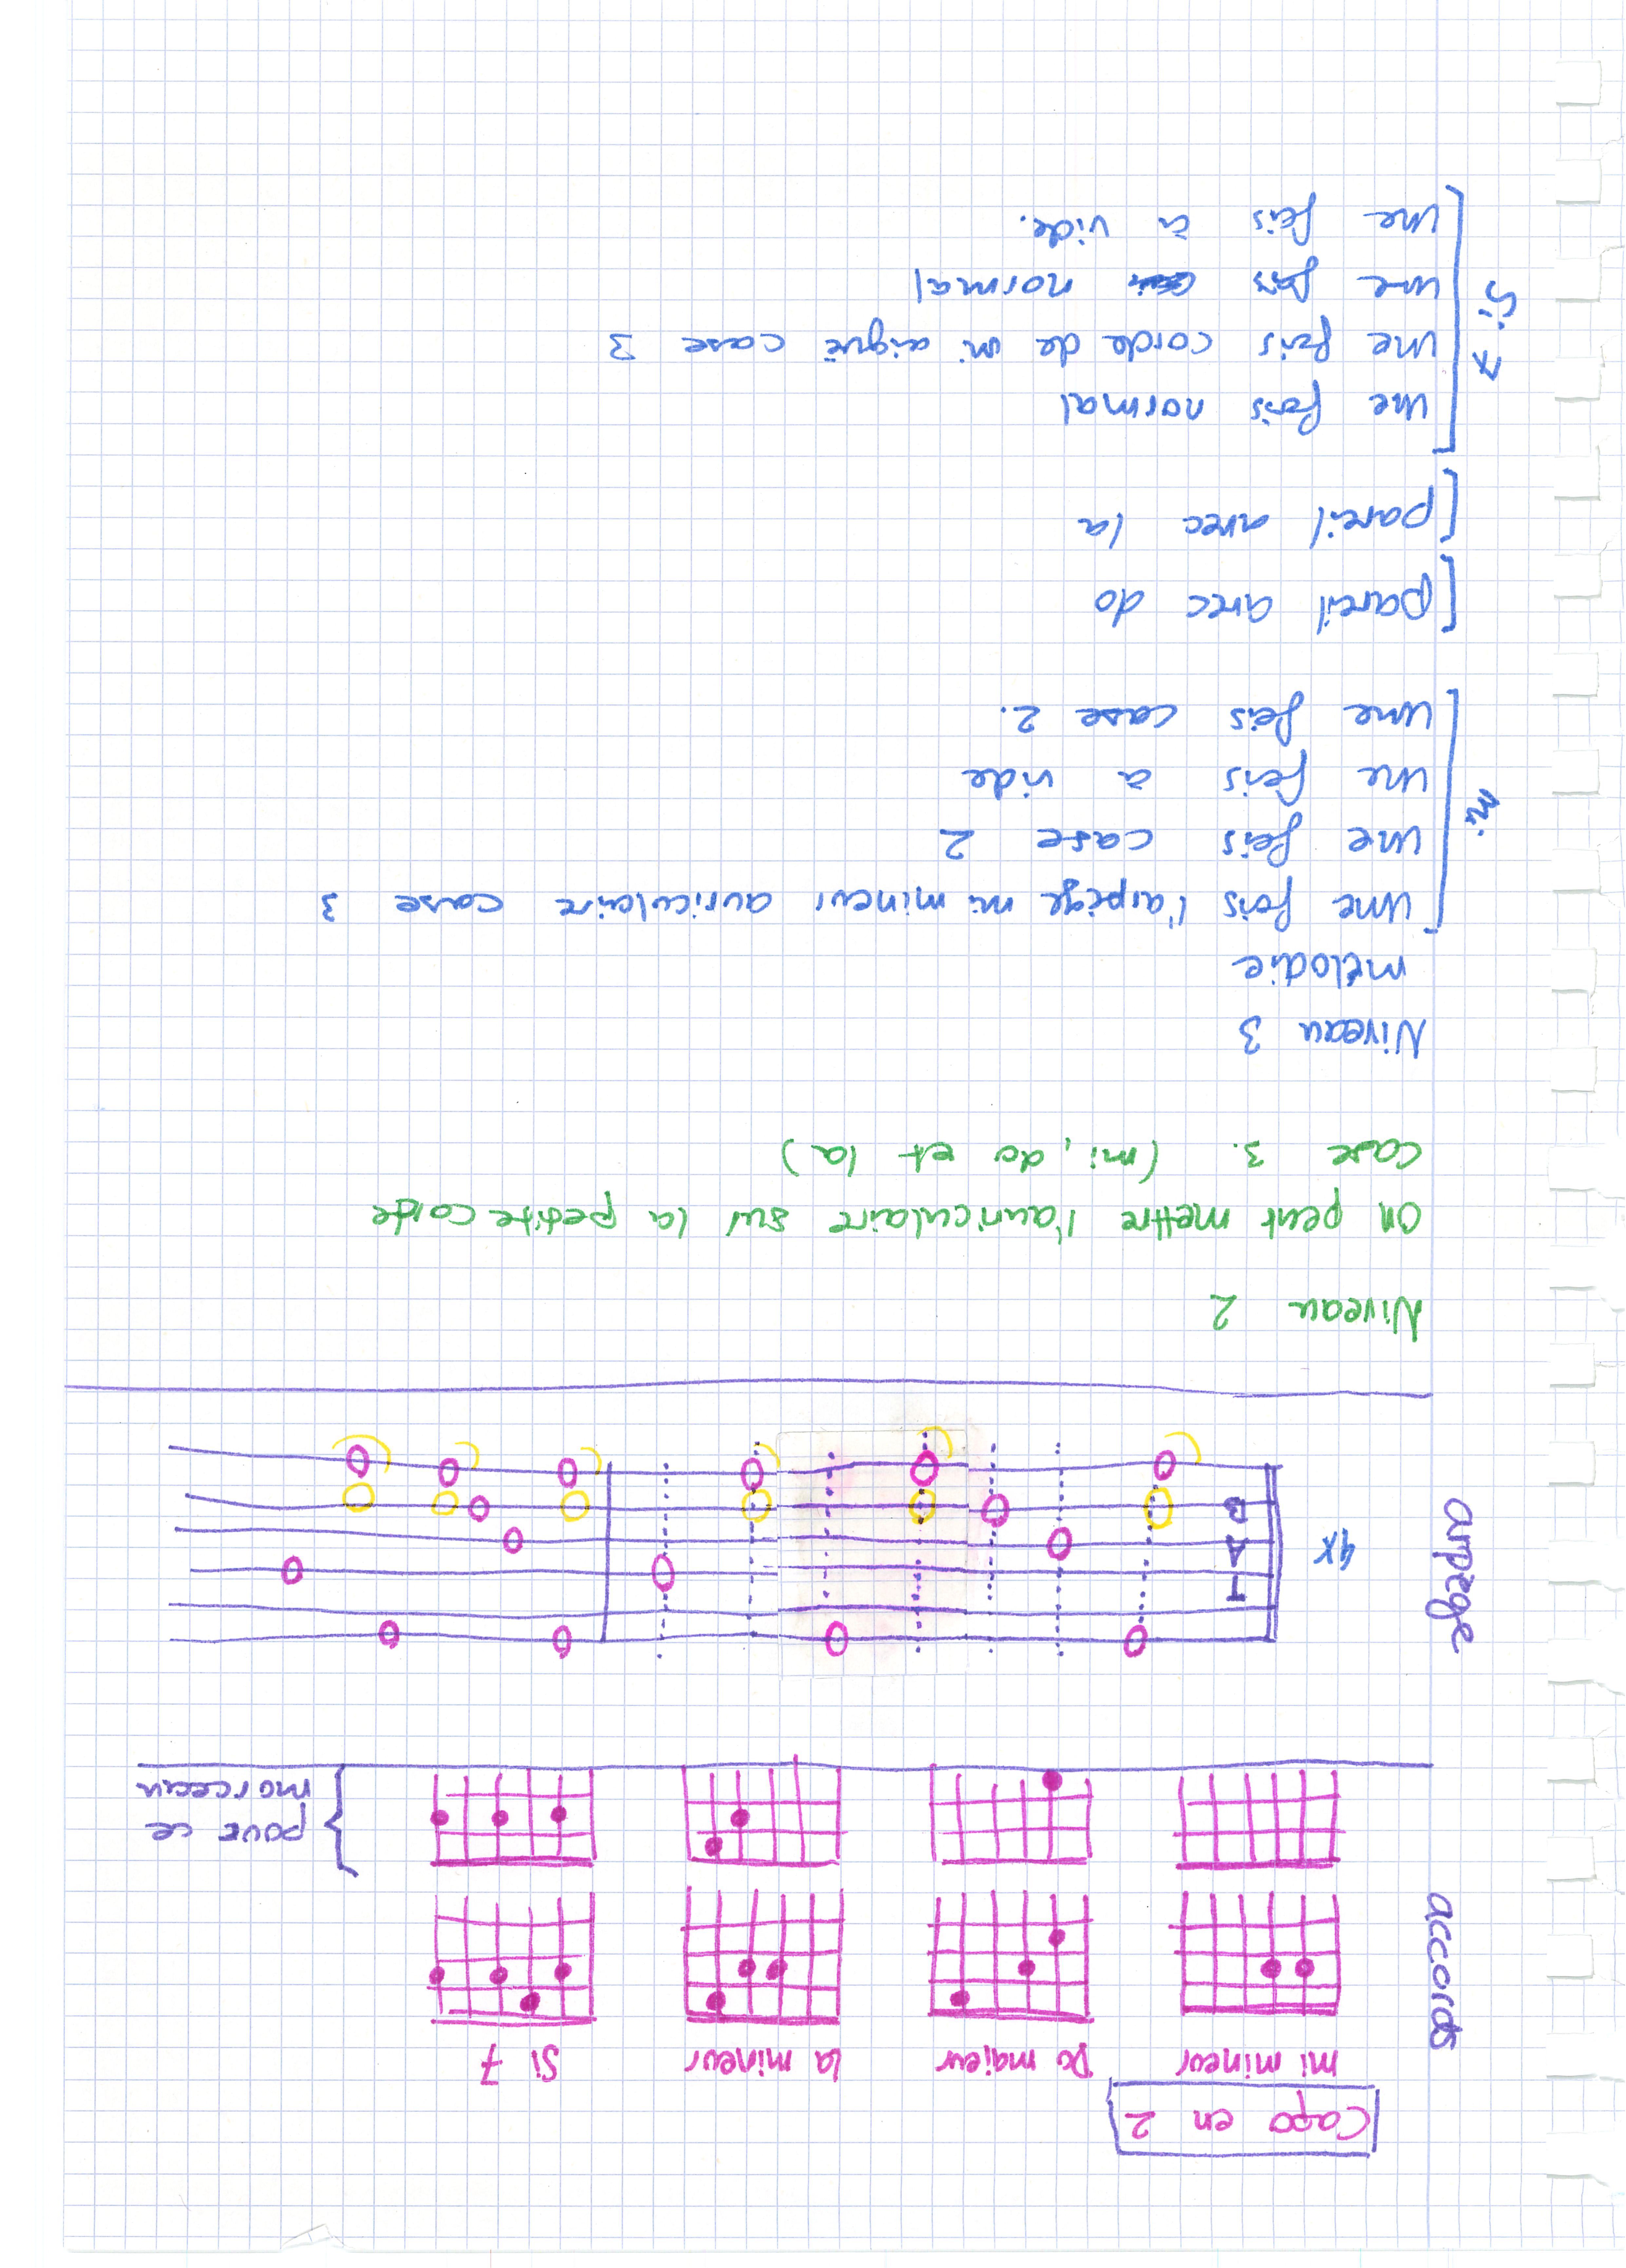 Capo en 2
accords
mi mineur Do majeur la mineur Si 7
pour ce
morceau
arpège
4x
T
A
B
Niveau 2
On peut mettre l'auriculaire sur la petite corde
case 3. (mi, do et la)
Niveau 3
mélodie
mi
une fois l'arpège mi mineur auriculaire case 3
une fois case 2
une fois à vide
une fois case 2.
pareil avec do
pareil avec la
Si 7
une fois normal
une fois corde de mi aiguë case 3
une fois normal
une fois à vide.